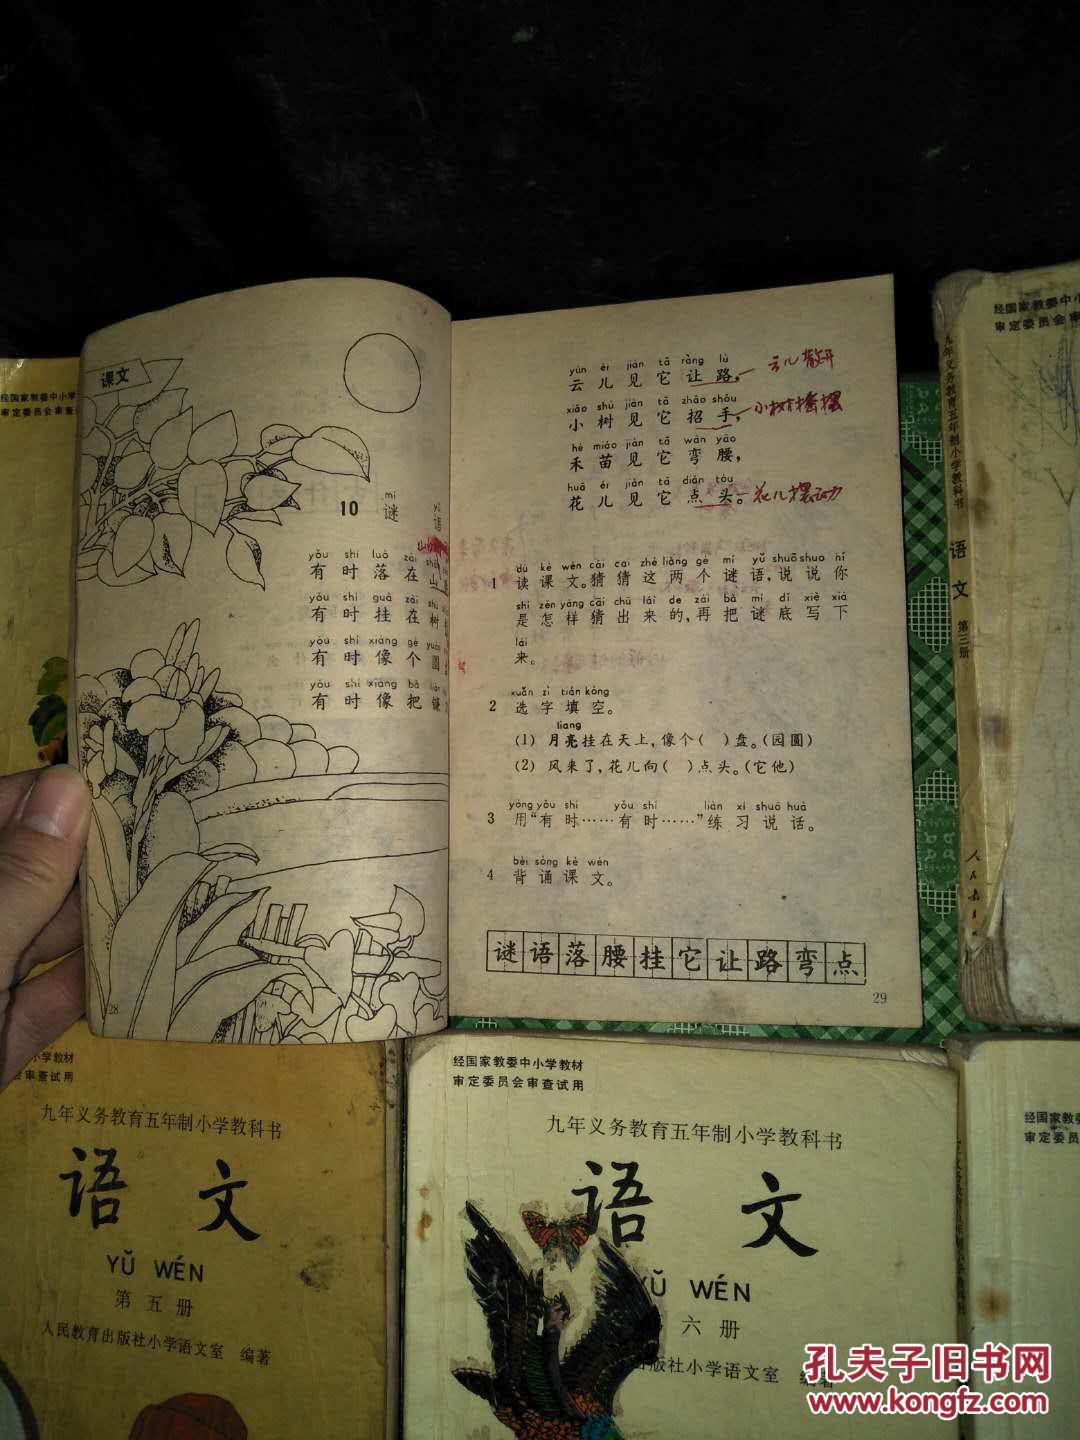 课文
10 mí
谜 语
yǒu shí luò zài shān
有时落在山
yǒu shí guà zài shù
有时挂在树
yǒu shí xiàng gè yuán
有时像个圆
yǒu shí xiàng bǎ lián
有时像把镰
28
yún ér jiàn tā ràng lù
云儿见它让路, 云儿散开
xiǎo shù jiàn tā zhāo shǒu
小树见它招手, 小树摇摆
hé miáo jiàn tā wān yāo
禾苗见它弯腰,
huā ér jiàn tā diǎn tóu
花儿见它点头。 花儿摆动
dú kè wén cāi cai zhè liǎng gè mí yǔ shuō shuo nǐ
1 读课文。猜猜这两个谜语,说说你
shì zěn yàng cāi chū lái de zài bǎ mí dǐ xiě xià
是怎样猜出来的,再把谜底写下
lái
来。
xuǎn zì tián kòng
2 选字填空。
liang
(1) 月亮挂在天上,像个( )盘。(园圆)
(2) 风来了,花儿向( )点头。(它他)
yòng yǒu shí yǒu shí liàn xí shuō huà
3 用“有时……有时……”练习说话。
bèi sòng kè wén
4 背诵课文。
谜语落腰挂它让路弯点
29
经国家教委中小学
审定委员会审查试用
经国家教委中小
审定委员会审
九年义务教育五年制小学教科书
语文
第三册
人民教
小学教材
会审查试用
九年义务教育五年制小学教科书
语文
YǓ WÉN
第五册
人民教育出版社小学语文室 编著
经国家教委中小学教材
审定委员会审查试用
九年义务教育五年制小学教科书
语文
YǓ WÉN
六册
出版社小学语文室 编著
经国家教委
审定委员
孔夫子旧书网
www.kongfz.com